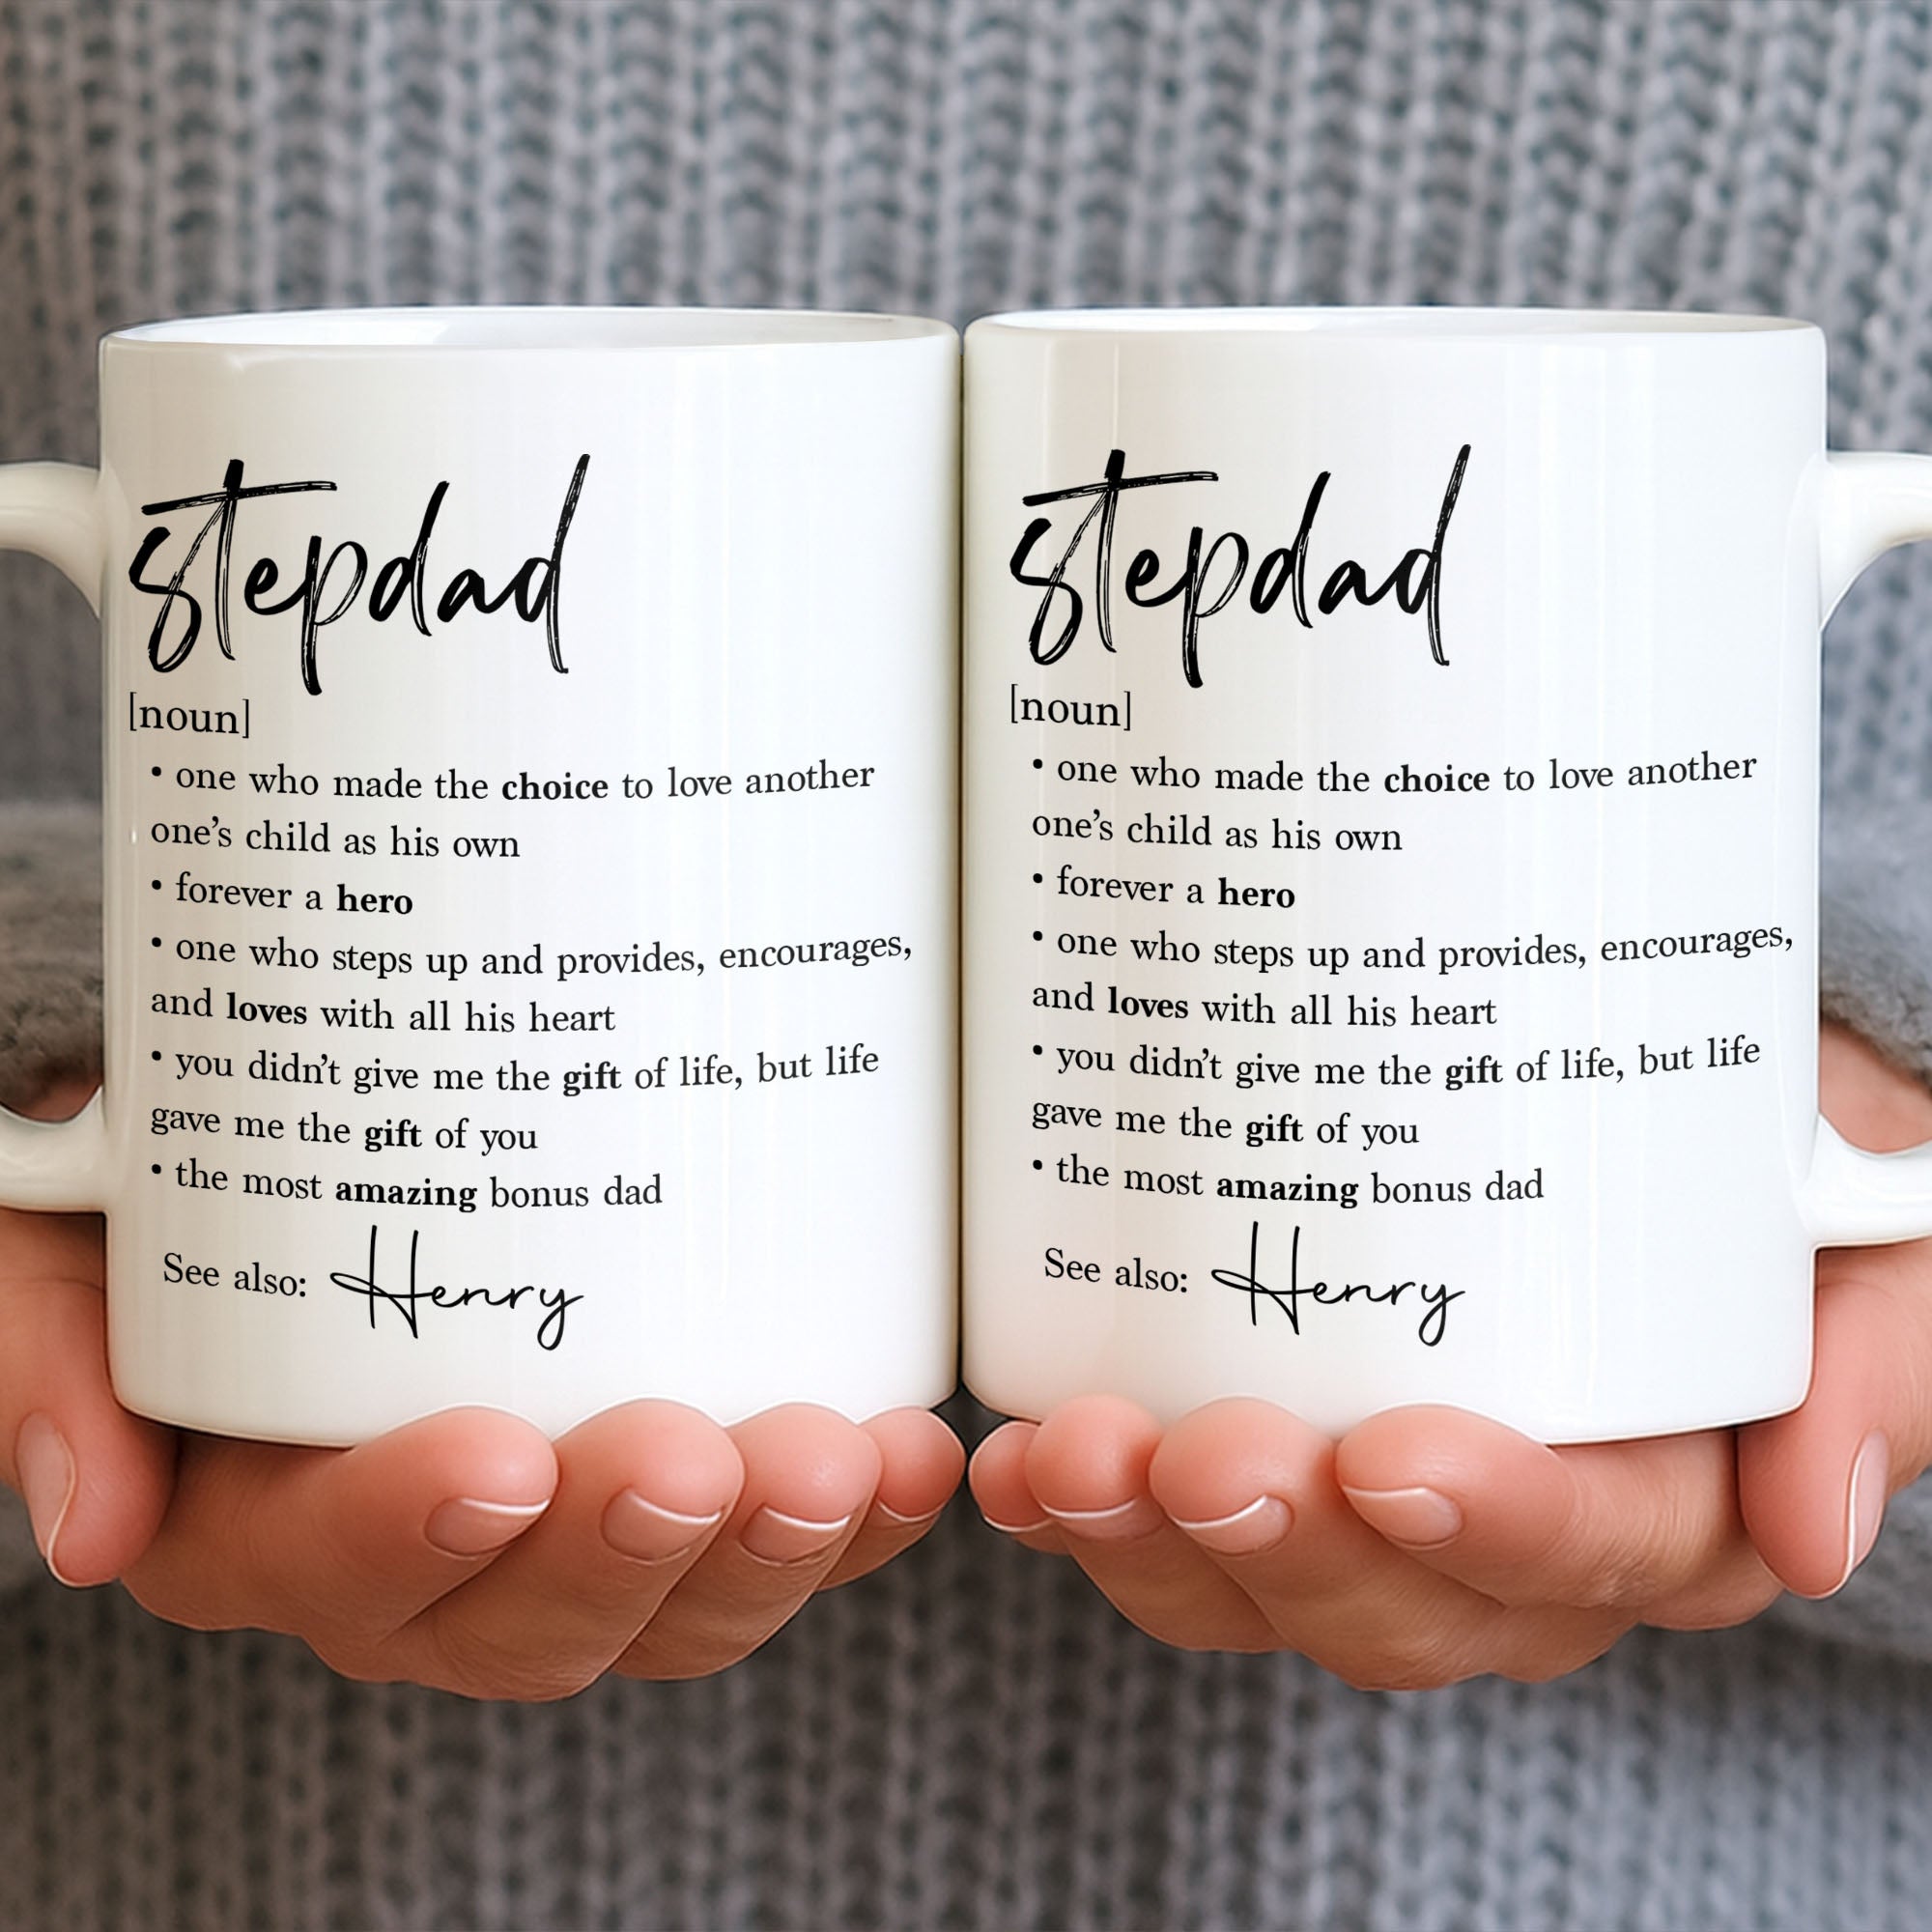 stepdad
[noun]
• one who made the choice to love another
one’s child as his own
• forever a hero
• one who steps up and provides, encourages,
and loves with all his heart
• you didn’t give me the gift of life, but life
gave me the gift of you
• the most amazing bonus dad
See also: Henry
stepdad
[noun]
• one who made the choice to love another
one’s child as his own
• forever a hero
• one who steps up and provides, encourages,
and loves with all his heart
• you didn’t give me the gift of life, but life
gave me the gift of you
• the most amazing bonus dad
See also: Henry